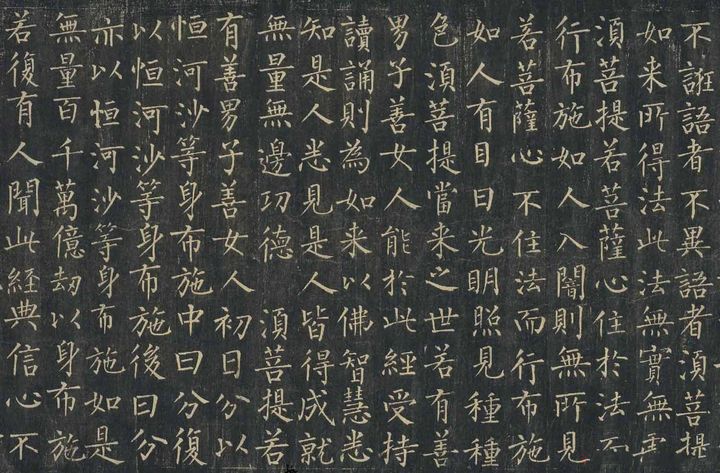 不誑語者不異語者須菩提
如来所得法此法無實無虛
須菩提若菩薩心住於法而
行布施如人入闇則無所見
若菩薩心不住法而行布施
如人有目日光明照見種種
色須菩提當来之世若有善
男子善女人能於此經受持
讀誦則為如来以佛智慧悉
知是人悉見是人皆得成就
無量無邊功德 須菩提若
有善男子善女人初日分以
恒河沙等身布施中日分復
以恒河沙等身布施後日分
亦以恒河沙等身布施如是
無量百千萬億劫以身布施
若復有人聞此經典信心不